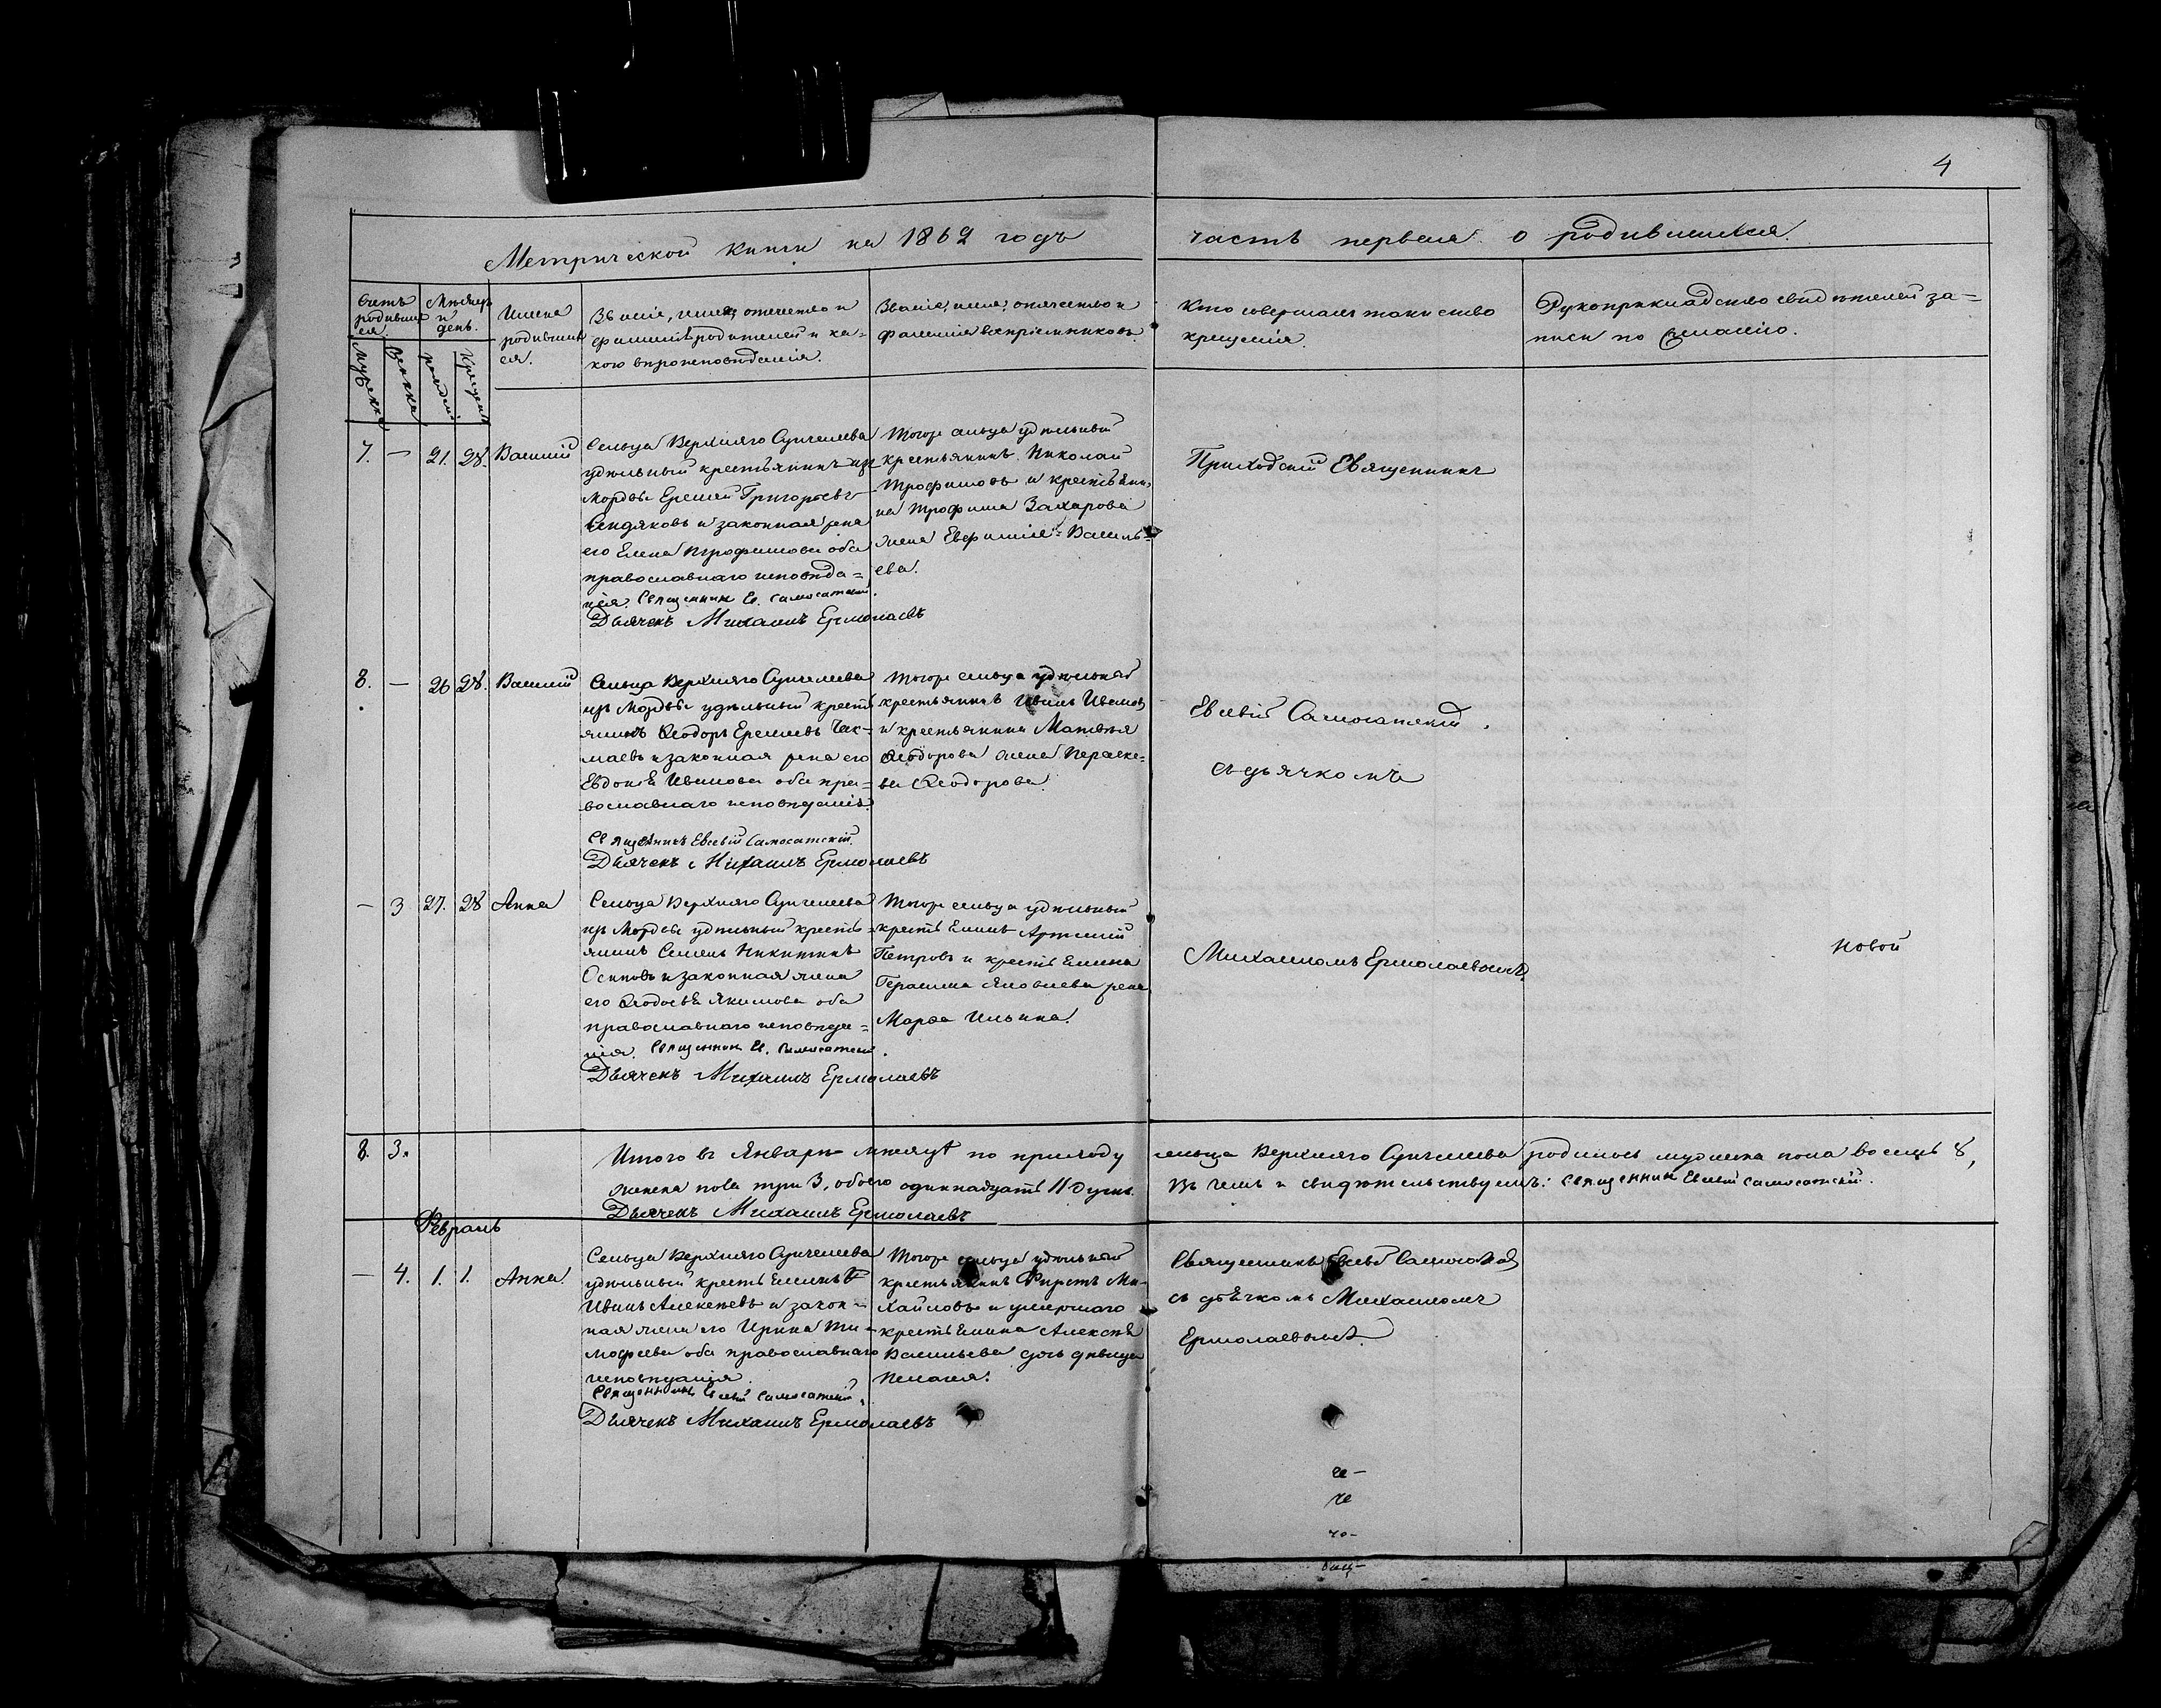 4
Метрической книги на 1862 годъ
часть первая о родившихся.
Счетъ родивших ся.
Мѣсяцъ и день.
Мужеска
Женска
рожденія
Крещенія
Имена
родивших
ся.
Званіе, имя, отечество и
фамилія родителей и ка=
кого вѣроисповѣданія.
Званіе, имя, отечество и
фамилія воспріемниковъ.
Кто совершалъ таинство
крещенія.
Рукоприкладство свидѣтелей за=
писи по желанію.
7. — 21. 28. Василій
Сельца Верхняго Сунчелеева
удѣльный крестьянинъ изъ
Мордвы Еремей Григорьевъ
и законная жена
его Елена Трофимова оба
православнаго исповѣда=
нія. Священник Ев. Самосатскій.
Дьячекъ Михаилъ Ермолаевъ
Тогоже сельца удѣльный
крестьянинъ Николай
Трофимовъ и крестьяни=
на Трофима Захарова
жена Евфимія Василь=
ева.
Приходскій Священникъ
8. — 26 28. Василій
Сельца Верхняго Сунчелеева
изъ Мордвы удѣльный кресть
янинъ Ѳеодоръ Еремеевъ Чек=
маевъ и законная жена его
Евдокія Иванова оба пра=
вославнаго исповѣданія.
Священникъ Евсевій Самосатскій.
Дьячекъ Михаилъ Ермолаевъ
Тогоже сельца удѣльный
крестьянинъ Иванъ Ивановъ
и крестьянина Матвѣя
Ѳеодорова жена Параске=
ва Ѳеодорова.
Евсевій Самосатскій.
съ дьячкомъ
— 3 27. 28 Анна
Сельца Верхняго Сунчелеева
изъ Мордвы удѣльный кресть=
янинъ Семенъ Никитинъ
Осиповъ и законная жена
его Ѳедосья Якимова оба
православнаго исповѣда=
нія. Священник Ев. Самосатскій.
Дьячекъ Михаилъ Ермолаевъ
Тогоже сельца удѣльный
крестьянинъ Артемій
Петровъ и крестьянина
Герасима Яковлева жена
Марѳа Ильина.
Михаиломъ Ермолаевымъ
новой
8. 3.
Итого въ Январѣ мѣсяцѣ по приходу сельца Верхняго Сунчелеева родилось мужеска пола восемь 8,
женска пола три 3, обоего одиннадцать 11 душъ. Въ чемъ и свидѣтельствуемъ: Священник Евсевій Самосатскій.
Дьячекъ Михаилъ Ермолаевъ
Февраль
— 4. 1. 1. Анна.
Сельца Верхняго Сунчелеева
удѣльный крестьянинъ
Иванъ Алексеевъ и закон=
ная жена его Ирина Ти=
мофеева оба православнаго
исповѣданія.
Священникъ Евсевій Самосатскій.
Дьячекъ Михаилъ Ермолаевъ
Тогоже сельца удѣльный
крестьянинъ Фирстъ Ми=
хайловъ и умершаго
крестьянина Алексѣя
Васильева дочь дѣвица
Пелагея.
Священникъ Евсевій Самосатскій
съ дьячкомъ Михаиломъ
Ермолаевымъ
че
чо-